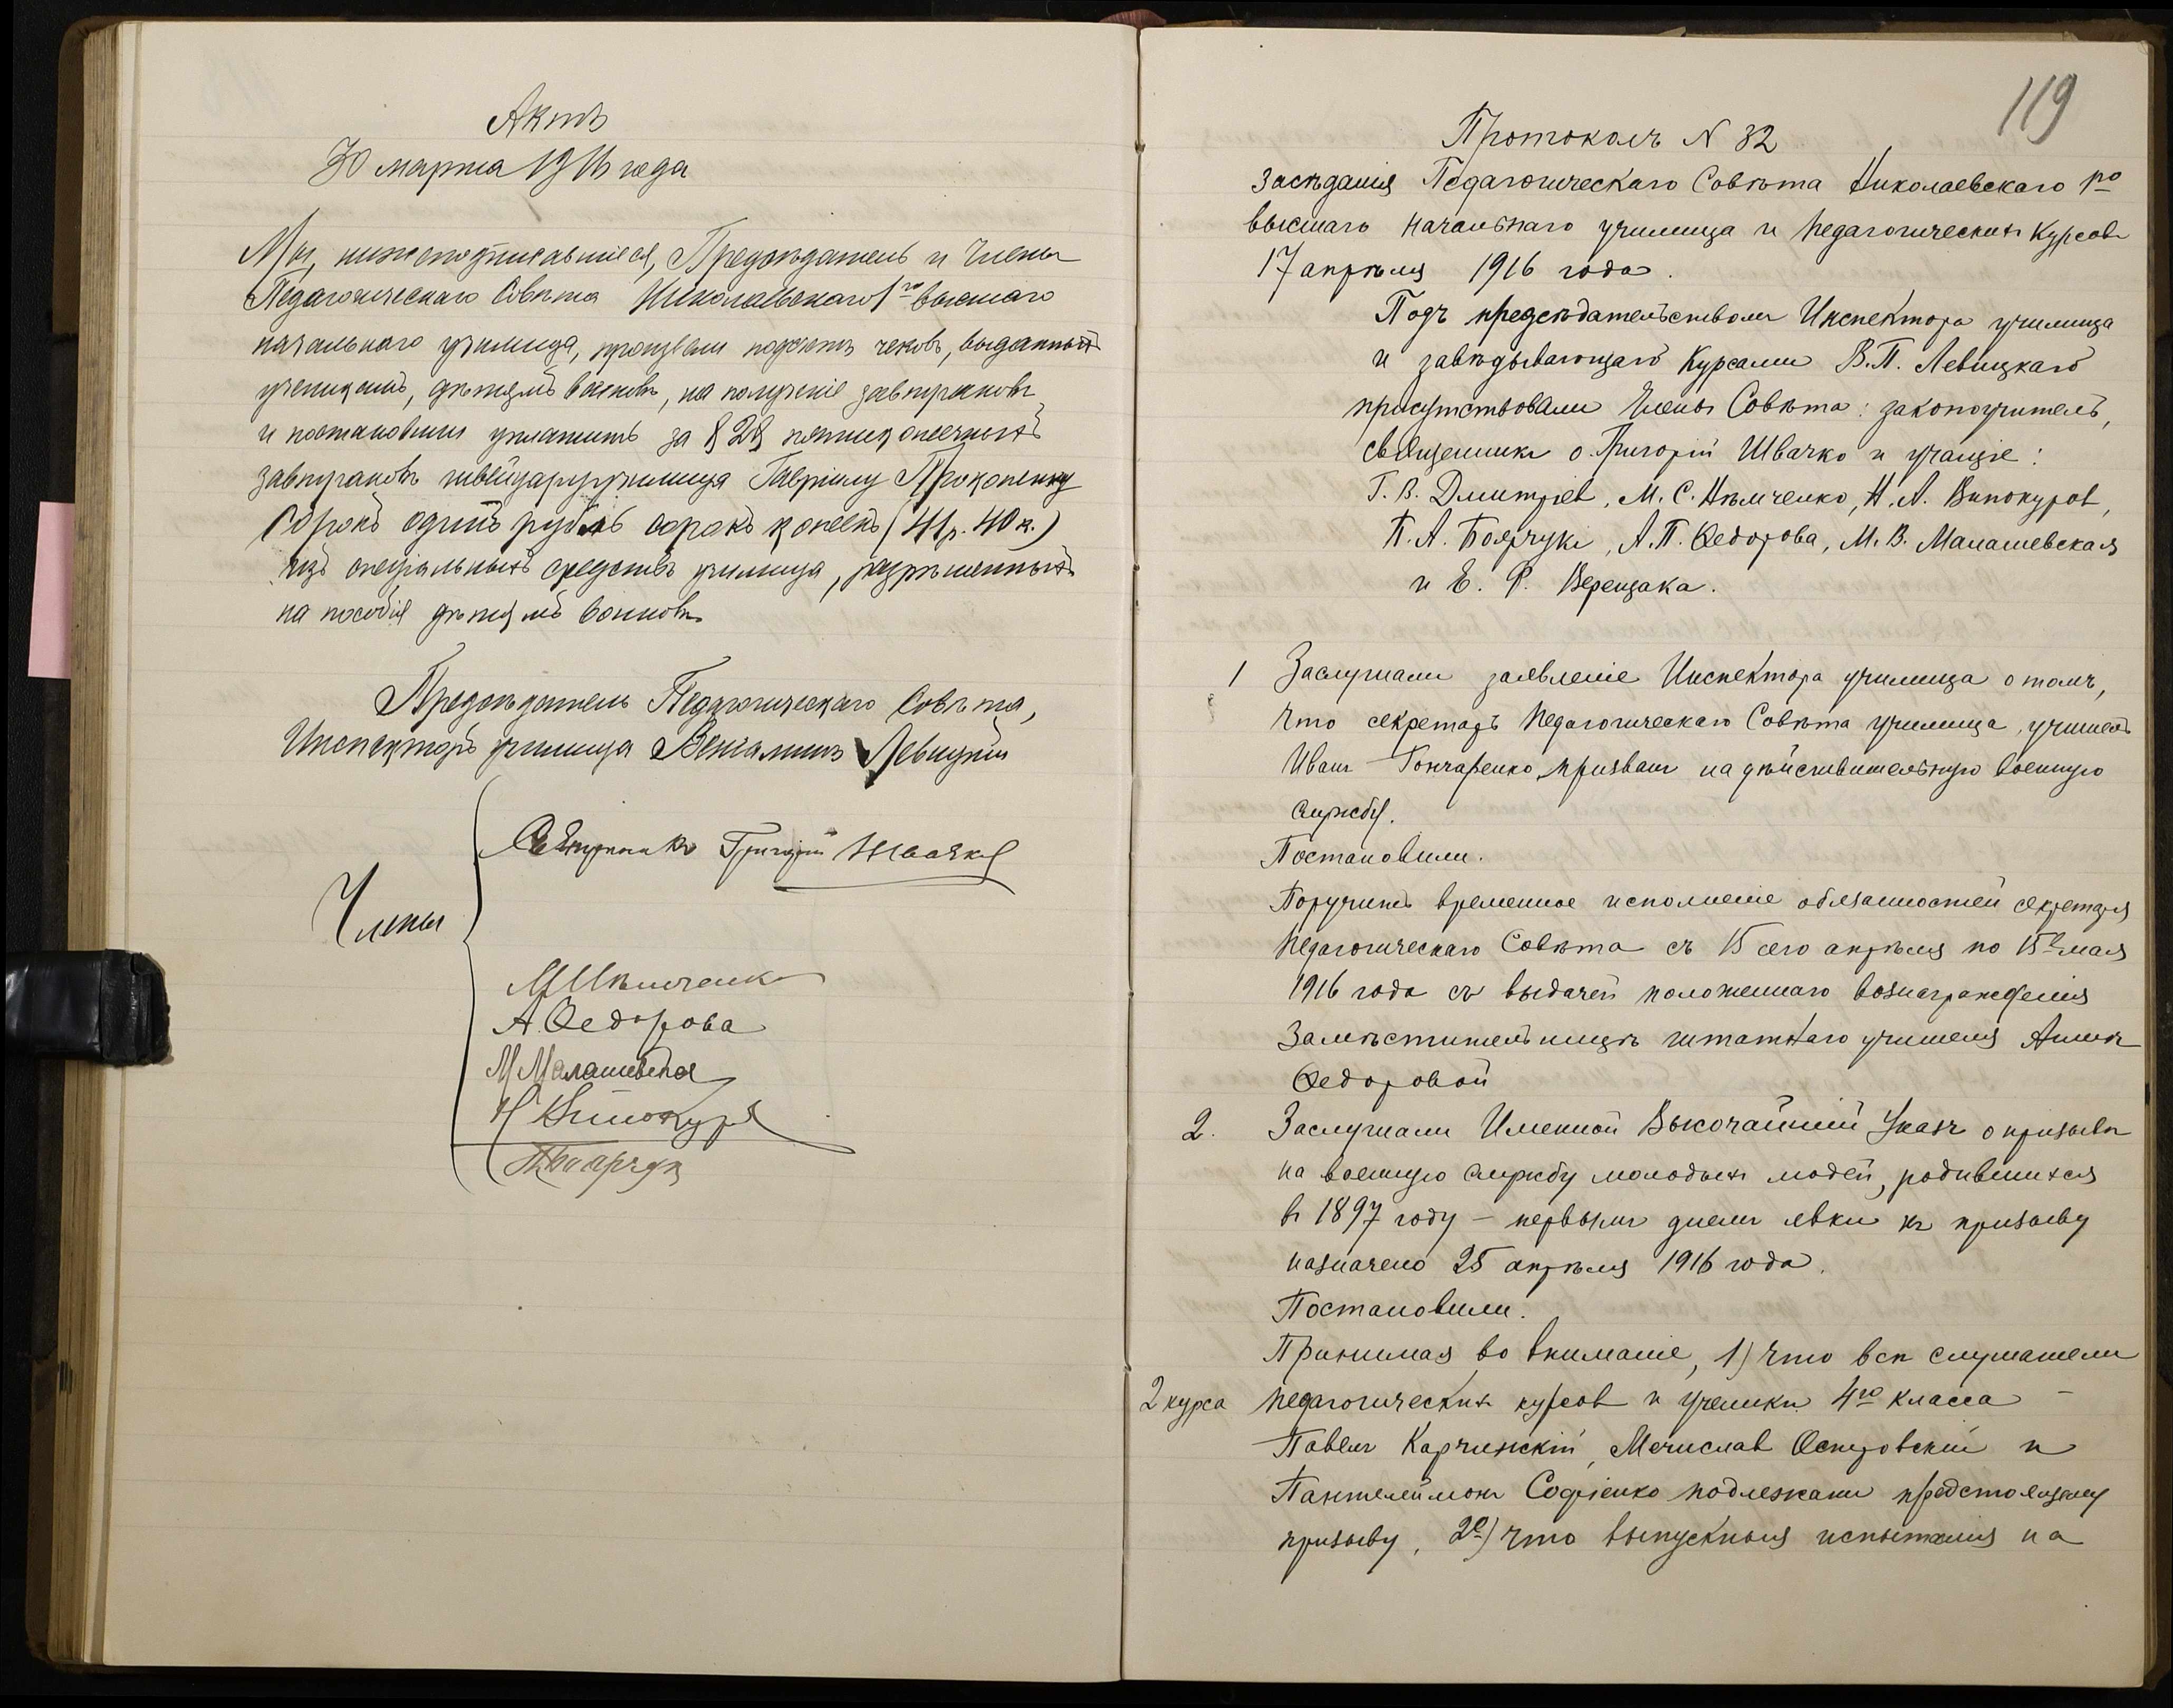 Актъ
30 марта 1916 года
Мы, нижеподписавшіеся, Предсѣдатель и Члены
Педагогическаго Совѣта Николаевскаго 1го высшаго
начальнаго училища, произвели подсчетъ чековъ, выданныхъ
ученикамъ, дѣтямъ воиновъ, на полученіе завтраковъ
и постановили уплатить за 828 пятикопеечныхъ
завтраковъ швейцару училища Гавріилу Прокопенку
сорокъ одинъ рубль сорокъ копеекъ (41р. 40к.)
изъ спеціальныхъ средствъ училища, разрѣшенныхъ
на пособія дѣтямъ воиновъ
Предсѣдатель Педагогическаго Совѣта,
Инспекторъ училища Веніаминъ Левицкій
Члены
Священникъ Григорій Швачко
М Нѣмченко
А. Ѳедорова
М Малашевская
Н Винокуров
П Боярчук
119
Протоколъ N 32
Засѣданія Педагогическаго Совѣта Николаевскаго 1го
высшаго начальнаго училища и педагогическихъ курсовъ
17 апрѣля 1916 года.
Подъ предсѣдательствомъ Инспектора училища
и завѣдывающаго курсами В.П. Левицкаго
присутствовали Члены Совѣта: законоучитель,
священникъ о. Григорій Швачко и учащіе:
Г. В. Дмитріев, М. С. Нѣмченко, Н. А. Винокуров,
П. А. Боярчукъ, А. П. Ѳедорова, М. В. Малашевская
и Е. Ф. Верещака.
1 Заслушали заявленіе Инспектора училища о томъ,
что секретарь Педагогическаго Совѣта училища, учитель
Иванъ Гончаренко призванъ на дѣйствительную военную
службу.
Постановили.
Поручить временное исполненіе обязанностей секретаря
Педагогическаго Совѣта съ 15 сего апрѣля по 15е мая
1916 года съ выдачей положеннаго вознагражденія
Замѣстительницѣ штатнаго учителя Аннѣ
Ѳедоровой
2. Заслушали Именной Высочайшій Указъ о призывѣ
на военную службу молодыхъ людей, родившихся
въ 1897 году – первымъ днемъ явки къ призыву
назначено 25 апрѣля 1916 года.
Постановили.
Принимая во вниманіе, 1) что всѣ слушатели
2 курса педагогическихъ курсовъ и ученики 4го класса –
Павелъ Карчинскій, Мечиславъ Осшровскій и
Пантелеймонъ Софіенко подлежали предстоящему
призыву, 2е) что выпускныя испытанія на